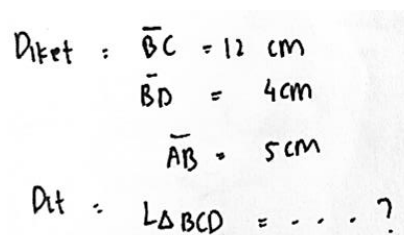 Diket : B̅C = 12 cm
B̅D = 4 cm
A̅B̅ = 5 cm
Dit : L∆ BCD = . . . . ?